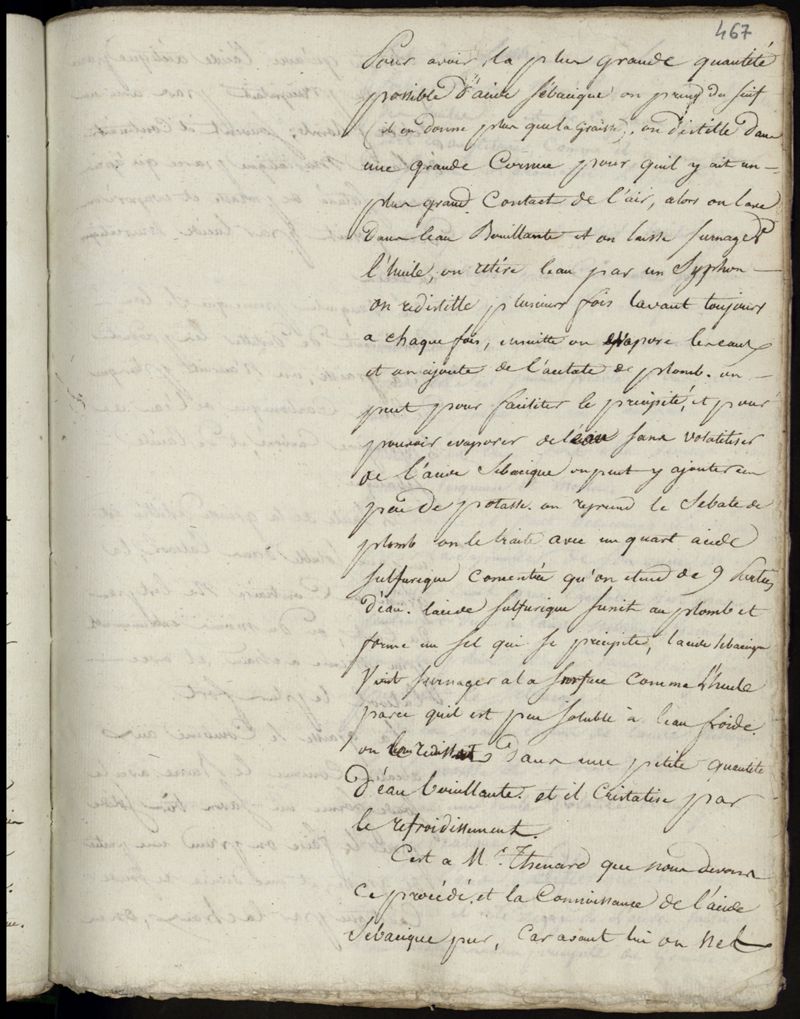 467
Pour avoir la plus grande quantité
possible d'acide sébacique on prend du suif
(il en donne plus que la Graisse), on distille dans
une grande Cornue pour quil y ait un
plus grand Contact de l'air, alors on lave
dans leau Bouillante et on laisse surnager
l'huile, on retire leau par un Syphon
on redistille plusieurs fois lavant toujours
a chaque fois, ensuitte on evapore les eaux
et on ajoute de l'acetate de plomb. on
peut pour faciliter le precipité, et pour
pouvoir evaporer de leau sans volatiliser
de l'acide Sebacique on peut y ajouter un
peu de potasse. on reprend le Sebate de
plomb on le traite avec un quart acide
sulfurique concentrée qu'on etend de 9 parties
d'eau. lacide sulfurique sunit au plomb et
forme un sel qui se precipite, lacide sebacique
vient surnager a la surface comme l'huile
parce quil est peu soluble à leau froide.
on dans une petite quantité
d'eau bouillante. et il Cristalise par
le refroidissement.
C'est a Mr. Thenard que nous devons
ce procédé, et la Connoissance de l'acide
Sébacique pur, Car avant lui on